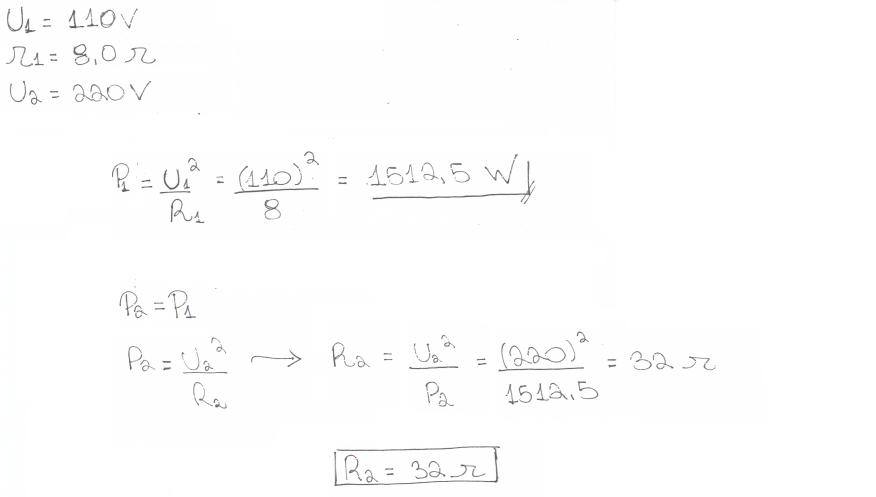 U1 = 110V
r1 = 8,0 Ω
U2 = 220V
P1 = U1²/R1 = (110)²/8 = 1512,5 W
P2 = P1
P2 = U2²/R2 → R2 = U2²/P2 = (220)²/1512,5 = 32 Ω
R2 = 32 Ω